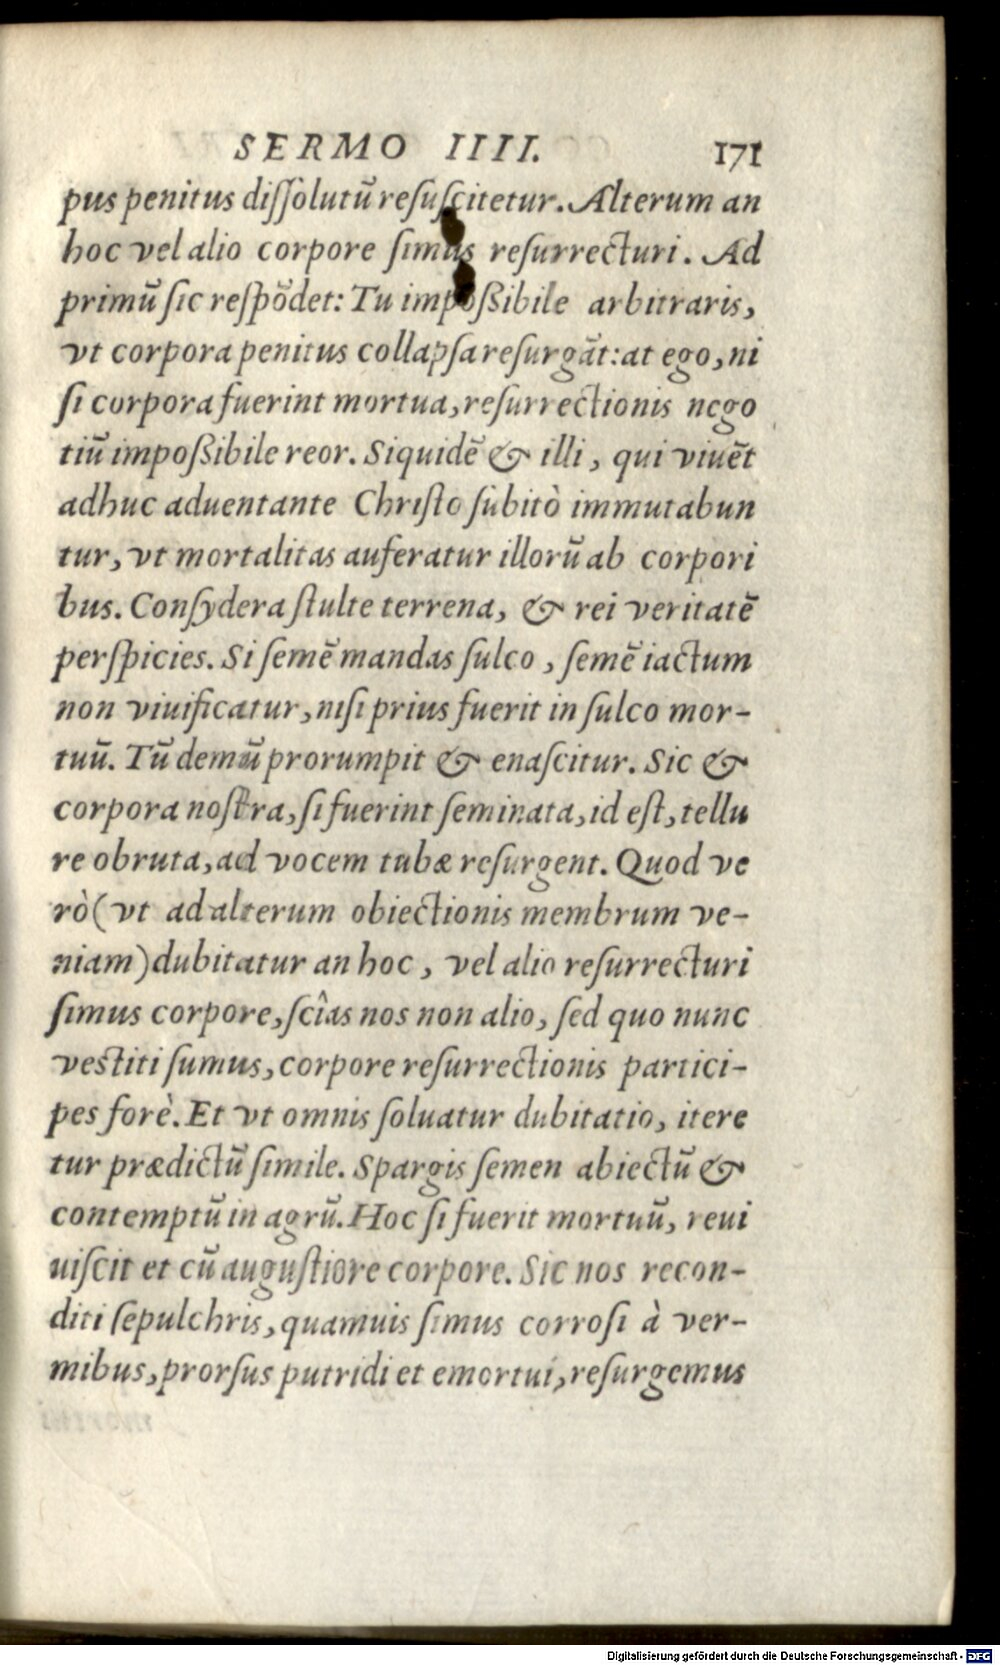 SERMO IIII. 171
pus penitus dissolutū resuscitetur. Alterum an
hoc vel alio corpore simus resurrecturi. Ad
primū sic respōdet: Tu impoßibile arbitraris,
vt corpora penitus collapsa resurgāt: at ego, ni
si corpora fuerint mortua, resurrectionis nego
tiū impoßibile reor. Siquidē & illi, qui viuēt
adhuc aduentante Christo subitò immutabun
tur, vt mortalitas auferatur illorū ab corpori
bus. Consydera stulte terrena, & rei veritatē
perspicies. Si semē mandas sulco, semē iactum
non viuificatur, nisi prius fuerit in sulco mor-
tuū. Tū demū prorumpit & enascitur. Sic &
corpora nostra, si fuerint seminata, id est, tellu
re obruta, ad vocem tubæ resurgent. Quod ve
rò (vt ad alterum obiectionis membrum ve-
niam) dubitatur an hoc, vel alio resurrecturi
simus corpore, scîas nos non alio, sed quo nunc
vestiti sumus, corpore resurrectionis partici-
pes forè. Et vt omnis soluatur dubitatio, itere
tur prædictū simile. Spargis semen abiectū &
contemptū in agrū. Hoc si fuerit mortuū, reui
uiscit et cū augustiore corpore. Sic nos recon-
diti sepulchris, quamuis simus corrosi à ver-
mibus, prorsus putridi et emortui, resurgemus
Digitalisierung gefördert durch die Deutsche Forschungsgemeinschaft - DFG